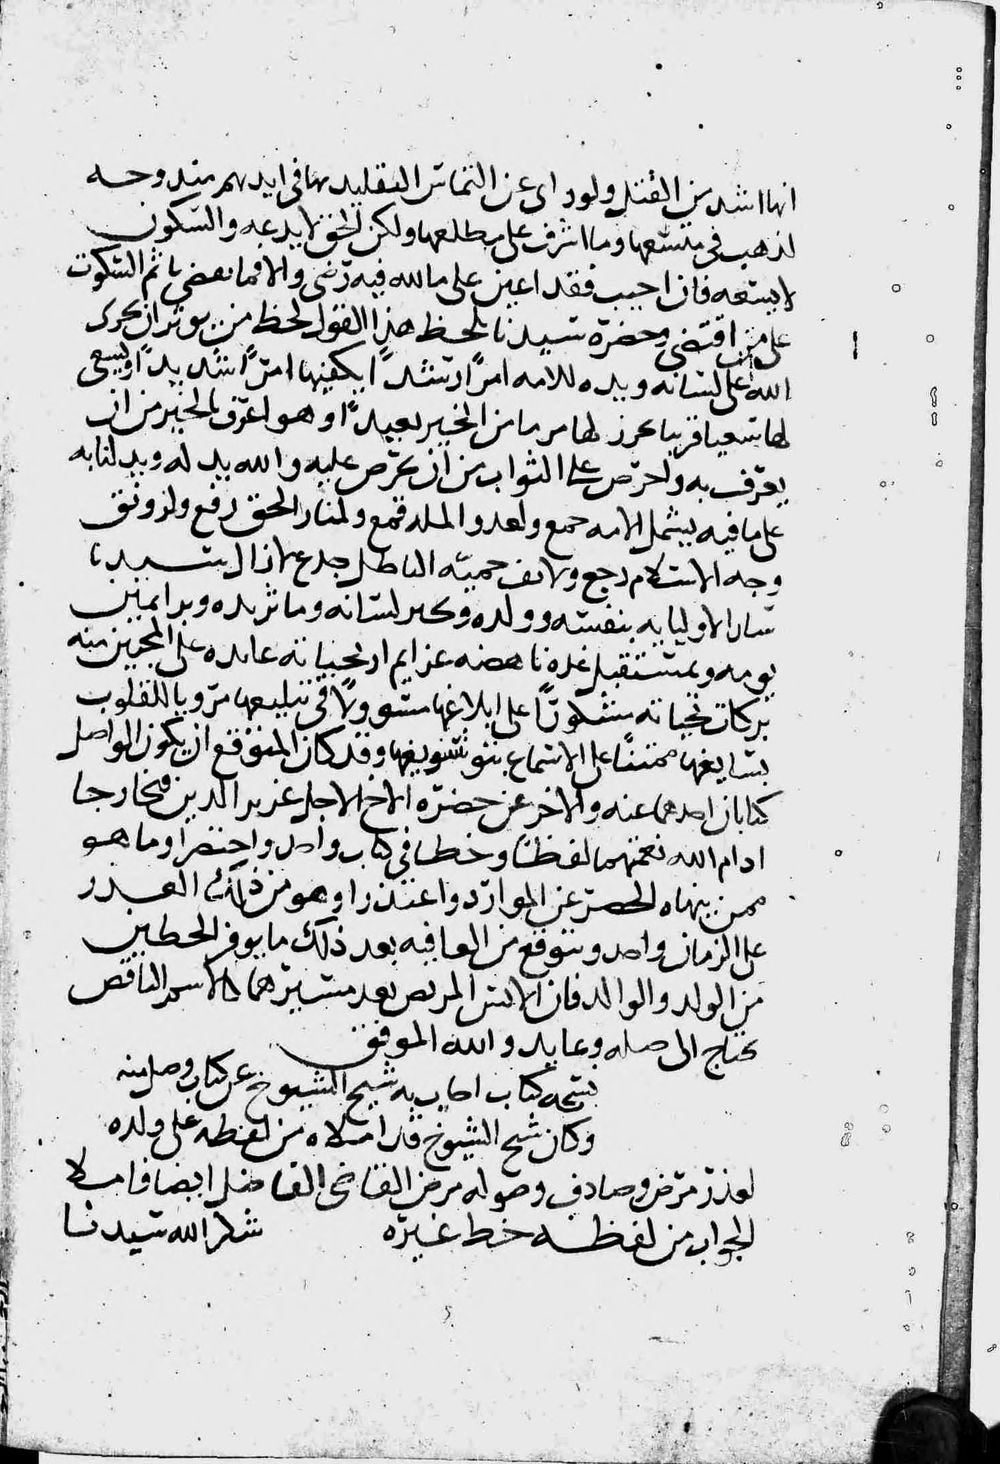 انها اشد من القتل ولو داى عن التماس التقليد بها فى ايديهم مندوحه
لذهب فى متسعها وما اشرف على مطلعها ولكن الحق لا يدعه والسكوت
لا يسعه فان اجيب فقد اعين على ما لله فيه رضى والا فما نعضى باثم السكوت
على من اقتضى وحضرة سيدنا تلحظ هذا القول لحظ من يوثر ان يجرى
الله على لسانه ويده للامه امرا رشدا يكفيها امرا شديدا او يسعى
لها سعيا قريبا يحرز لها مرما من الخير بعيدا وهو اعرف بالخير من ان
يعرف به واحرص على الثواب من ان يحرص عليه والله يديله ويديلنا به
على ما فيه لشمل الامه جمع ولعدو المله قمع ولمنار الحق رفع ولرونق
وجه الاسلام رجع ولانف حميه الباطل جدع لا زال سيدنا
سار الاوليا به بنفسه وولده وكبر لسانه وما ثر يده وبرا بمين
يومه ومستقبل غده ناهضه عزايم اد تحياته عايده على المجرين منه
بركات تحياته مشكورا على ابلاغها مسوولا فى تبليغها مرويا للقلوب
بسايغها ممتنا على الاسماع بتو شنويفها وقد كان المتوقع ان يكون الواصل
كتابان احدهما عنه والاخر عن حضرة الاخ الاجل عزيز الدين فخارجا
ادام الله نعمتهما لفظا وخطا فى كتاب واحد واختصرا وما هو
ممن ينهاه الحصر عن الموارد واعتذرا وهو من ذلك العدر
على الزمان واجد ونتوقع من العافيه بعد ذلك ما يوفر الحظين
من الولد والوالد فان الانس المربص بعد مسيرهما كالاسم الناقص
يحتاج الى صله وعايد والله الموفق
نسخه كتاب اجاب به شيخ الشيوخ عن كتاب وصل منه
وكان شيخ الشيوخ قد املاه من لفظه على ولده
لعذر مرض وصادف وصوله مرض القاضى الفاضل ايضا فاملا
الجواب من لفظه خط غيره شكر الله سيدنا